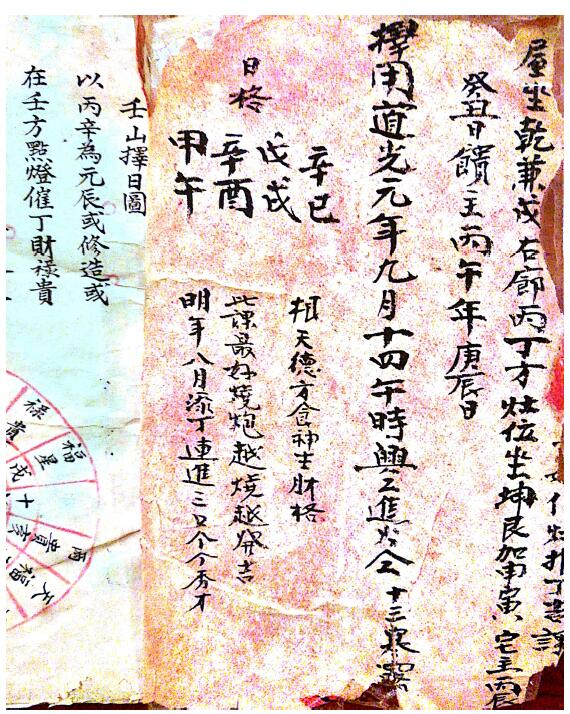 屋坐乾兼戌右廊丙丁方灶位坐坤艮加甲寅宅主丙辰
癸丑日饋主丙午年庚辰日
擇用道光元年九月十四午時興工進火
日格
辛巳
戊戌
辛酉
甲午
天德方食神生財格
此課最好燒炮越燒越發吉
明年八月添丁連進三口个个秀才
壬山擇日圖
以丙辛為元辰或修造或
在壬方點燈催丁財祿貴
福星
祿貴
天福